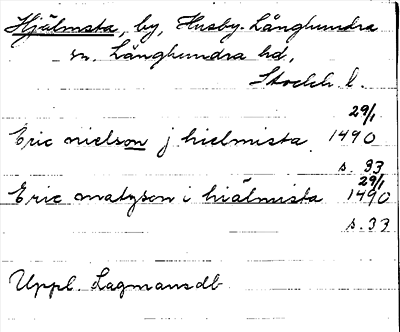 Hjälmsta, by, Husby-Långhundra
sn. Långhundra hd,
Stockh. l.
29/1
Eric nielson j hielmista 1490
s. 33
29/1
Eric matzson i hiälmista 1490
s. 33
Uppl. Lagmansdb